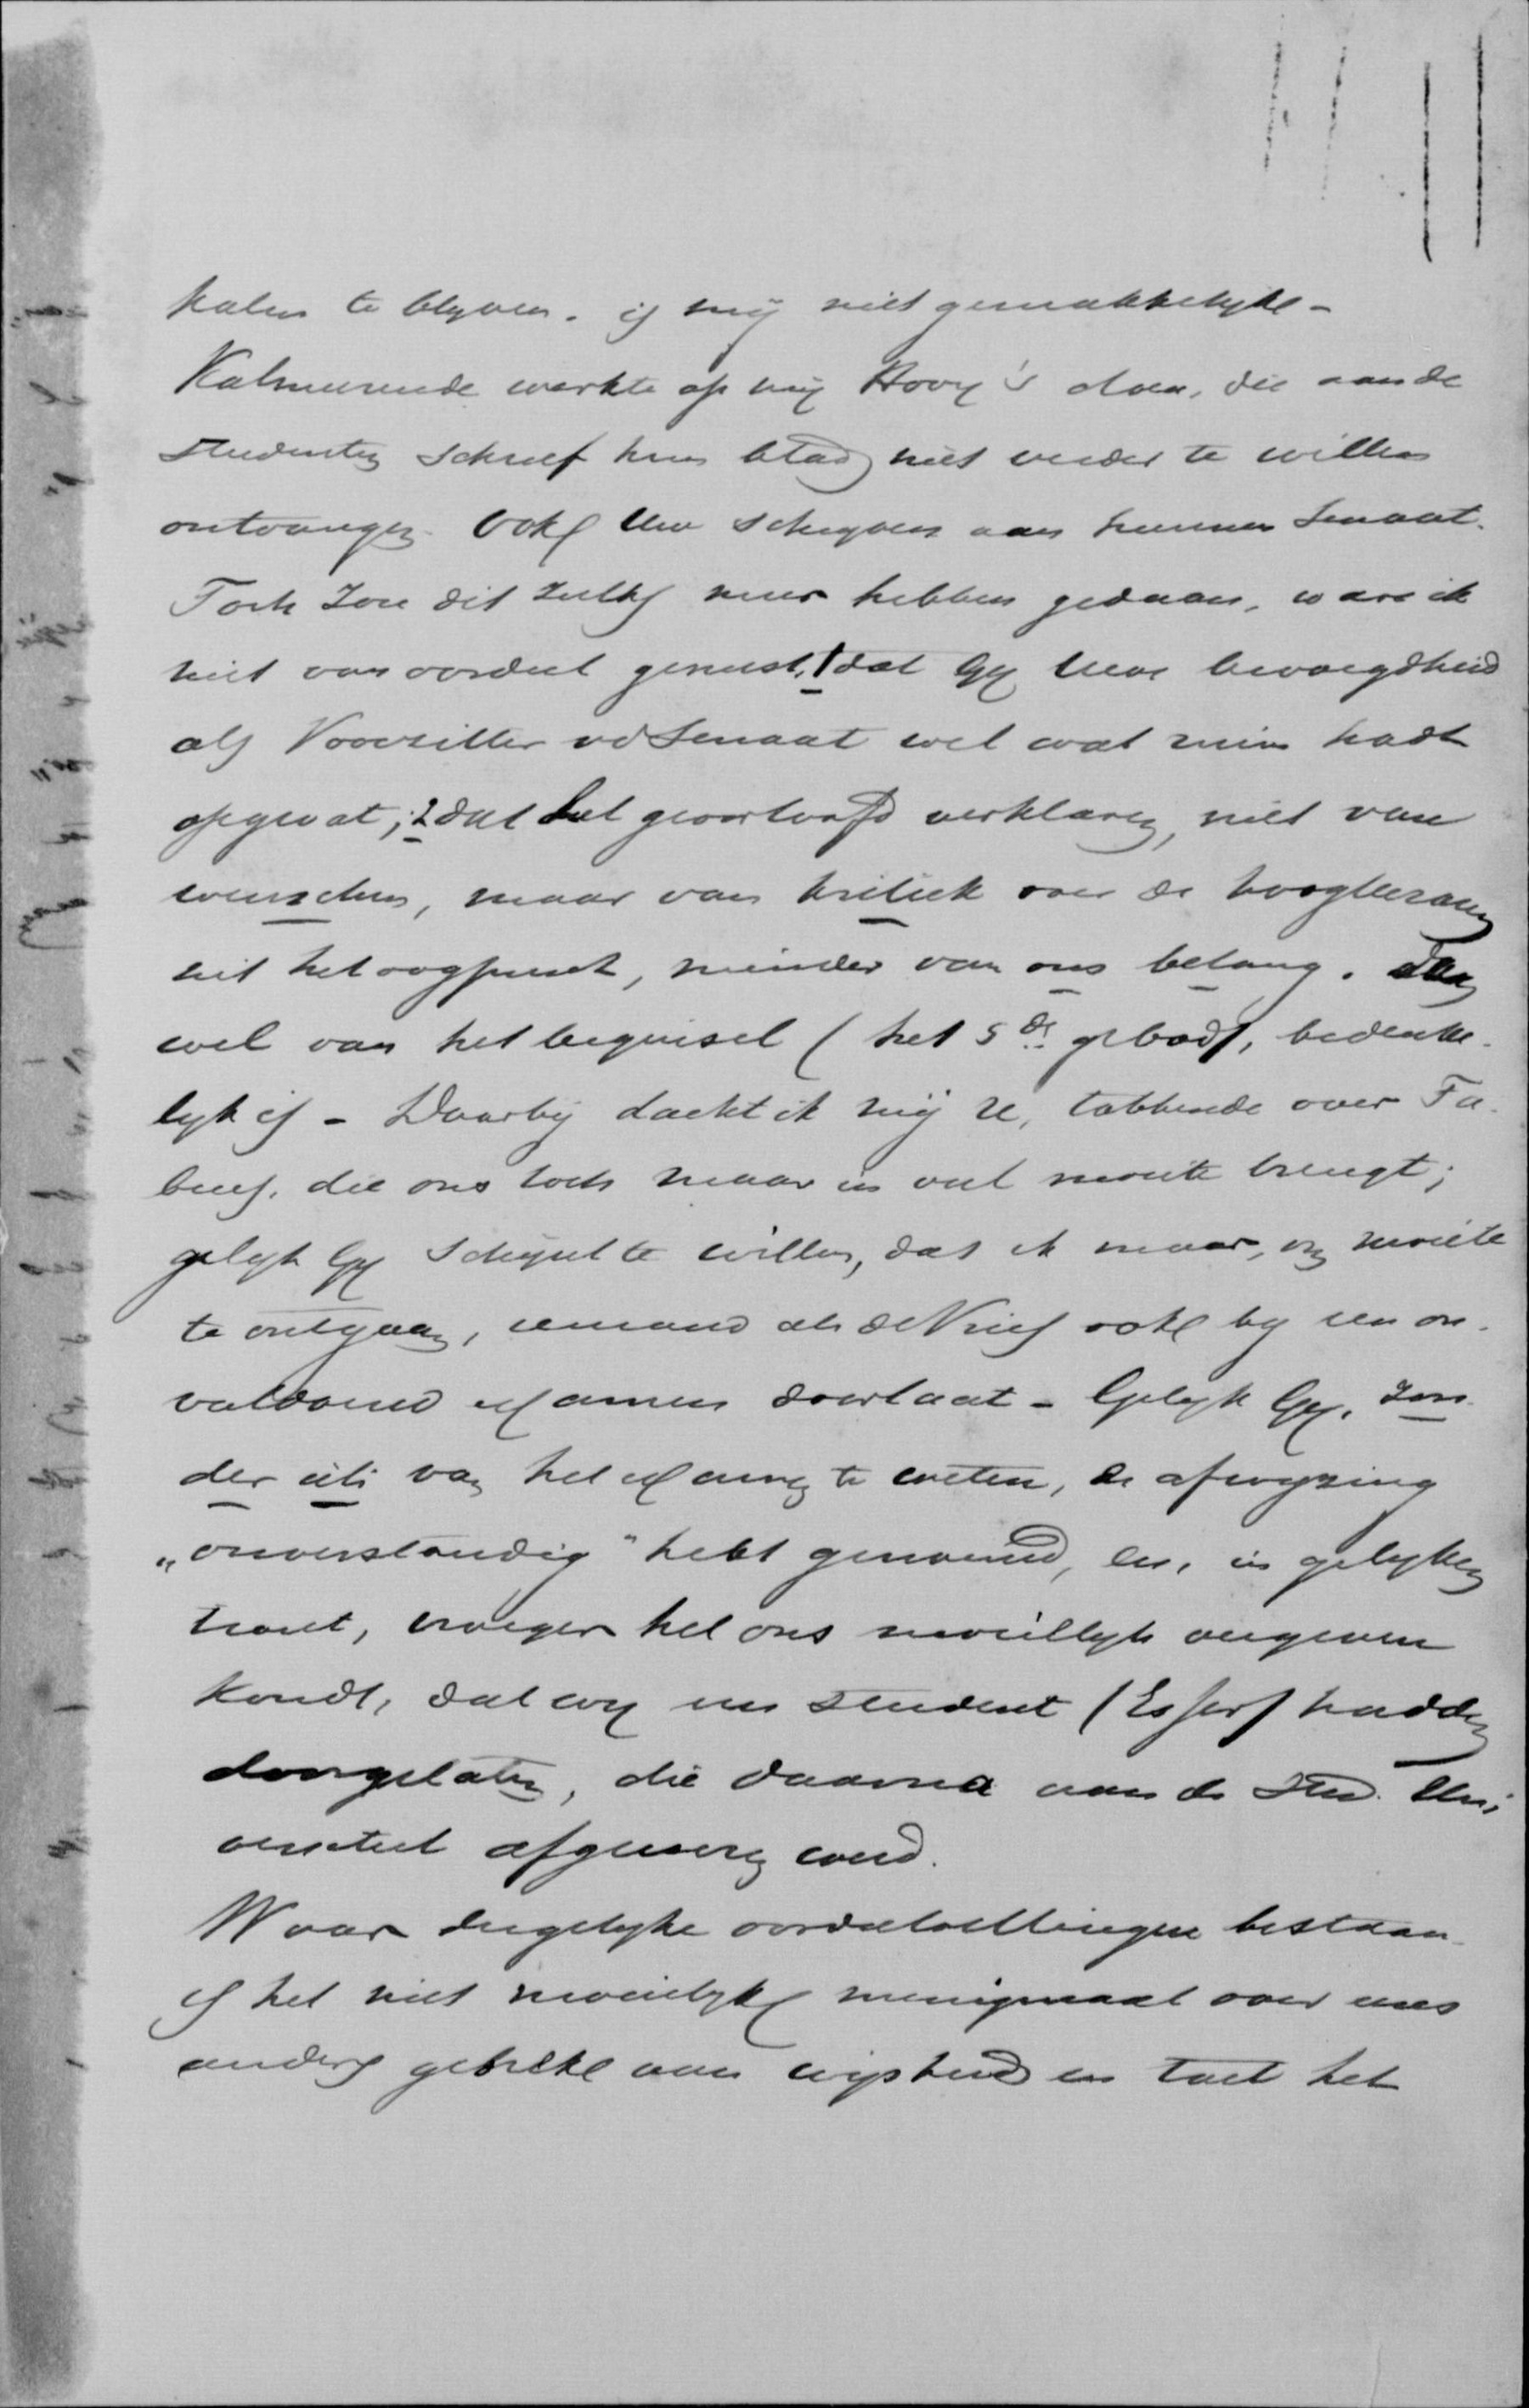 kalm te blyven. is mij niet gemakkelyk -
Kalmeerende werkte op mij Hovy's daa, die aan de
Studenten schreef hun blad niet verder te willen
ontvangen. Ook Uw schryven aan hunnen Senaat.
Toch zou dit zulks meer hebben gedaan, ware ik
niet van oordeel geweest, 1 dat Gy Uwe bevoegdheid
als Voorzitter vd Senaat wel wat ruim hadt
opgevat; 2 dat het geoorloofd verklaren, niet van
wenschen, maar van kritiek over de hoogleeraren
uit het oogpunt, minder van ons belang. dan
wel van het beginsel (het 5de gebod), bedenke-
lyk is - Daarbij dacht ik mij U, tobbende over Fa-
bius, die ons toch maar in veel moeite brengt;
gelyk Gy schijnt te willen, dat ik maar, om moeite
te ontgaan, iemand als de Vries ook by een on-
voldoend examen doorlaat - Gelyk Gy, zon-
der iets van het examen te weten, de afwyzing
"onverstandig" hebt genoemd, en, in gelyken
trant, vroeger het ons moeilyk vergeven
kondt, dat wy een student (Esser) hadden
doorgelaten, die daarna aan de Sted. Uni
versiteit afgewezen werd.
Waar dergelyke oordeelvellingen bestaan
is het niet moeielyk menigmaal over eens
anders gebrek aan wijsheid en tact het